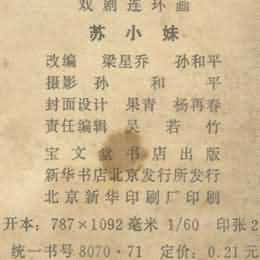 戏剧连环画
苏小妹
改编 梁星乔 孙和平
摄影 孙和平
封面设计 果青 杨再春
责任编辑 吴若竹
宝文堂书店出版
新华书店北京发行所发行
北京新华印刷厂印刷
开本：787×1092毫米 1/60 印张2
统一书号8070·71 定价：0.21元